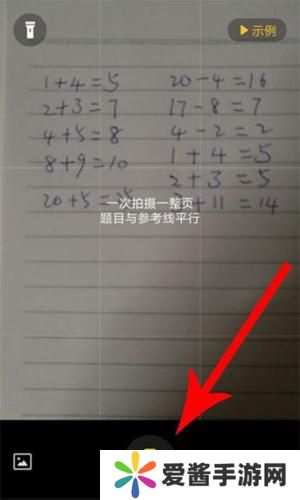 示例
1+4=5 20-4=16
2+3=7 17-8=7
4+5=8 4-2=2
8+9=10 1+4=5
2+3=5
20+5=25 +11=14
一次拍摄一整页
题目与参考线平行
爱酱手游网